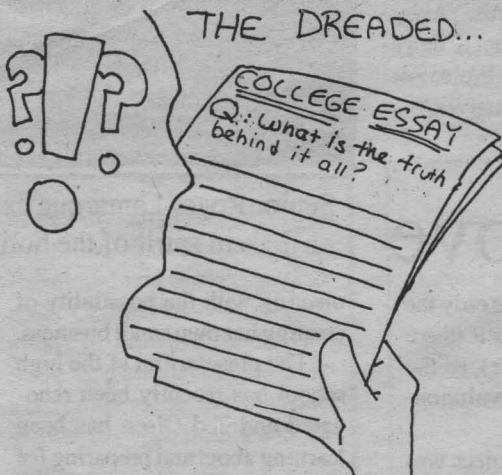 THE DREADED...
?!?
COLLEGE ESSAY
Q: What is the truth
behind it all?